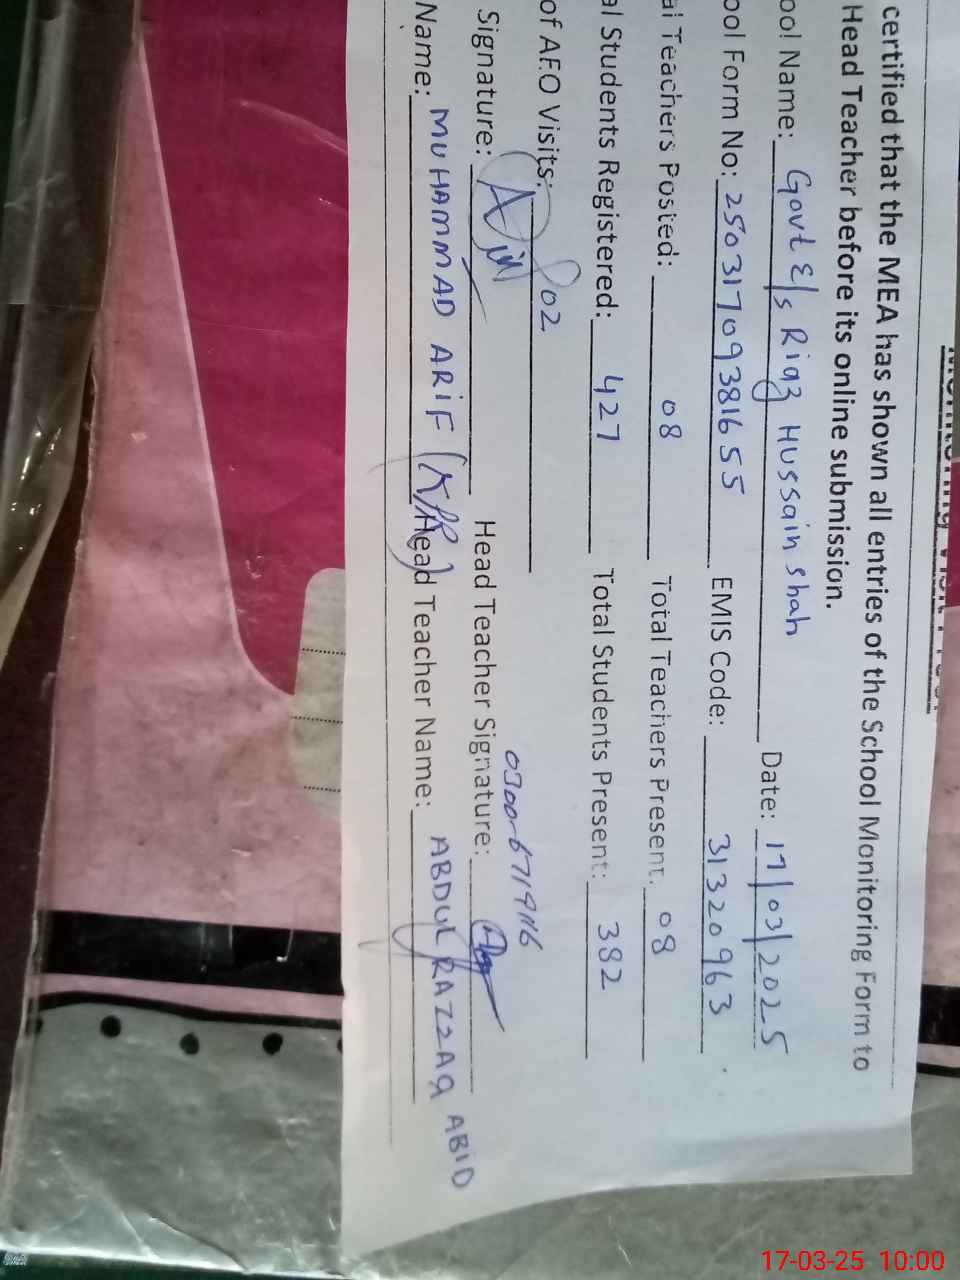 certified that the MEA has shown all entries of the School Monitoring Form to
Head Teacher before its online submission.
ool Name: Govt E/s Riaz Hussain Shah Date: 17/03/2025
ool Form No: 2503170938165 5 EMIS Code: 31320963
al Teachers Posted: 08 Total Teachers Present: 08
al Students Registered: 427 Total Students Present: 382
of AEO Visits: 02
Signature: Head Teacher Signature:
Name: MUHAMMAD ARIF Head Teacher Name: ABDUL RAZZAQ ABID
17-03-25 10:00